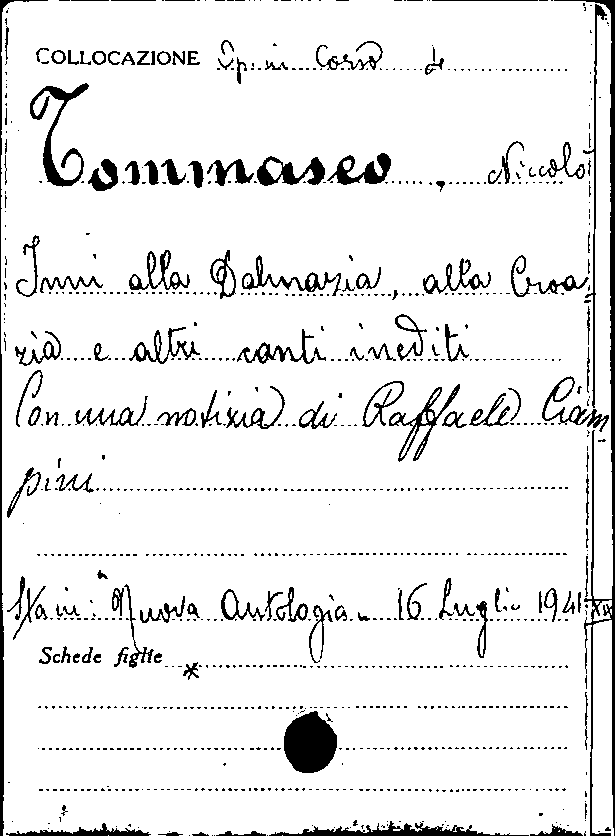 COLLOCAZIONE Op. in Corso de
Tommaseo, Niccolò
Inni alla Dalmazia, alla Croa
zia e altri canti inediti
Con una notizia di Raffaele Ciam
pini
Sta in: "Nuova Antologia" 16 Luglio 1941 XIX
Schede figlie *